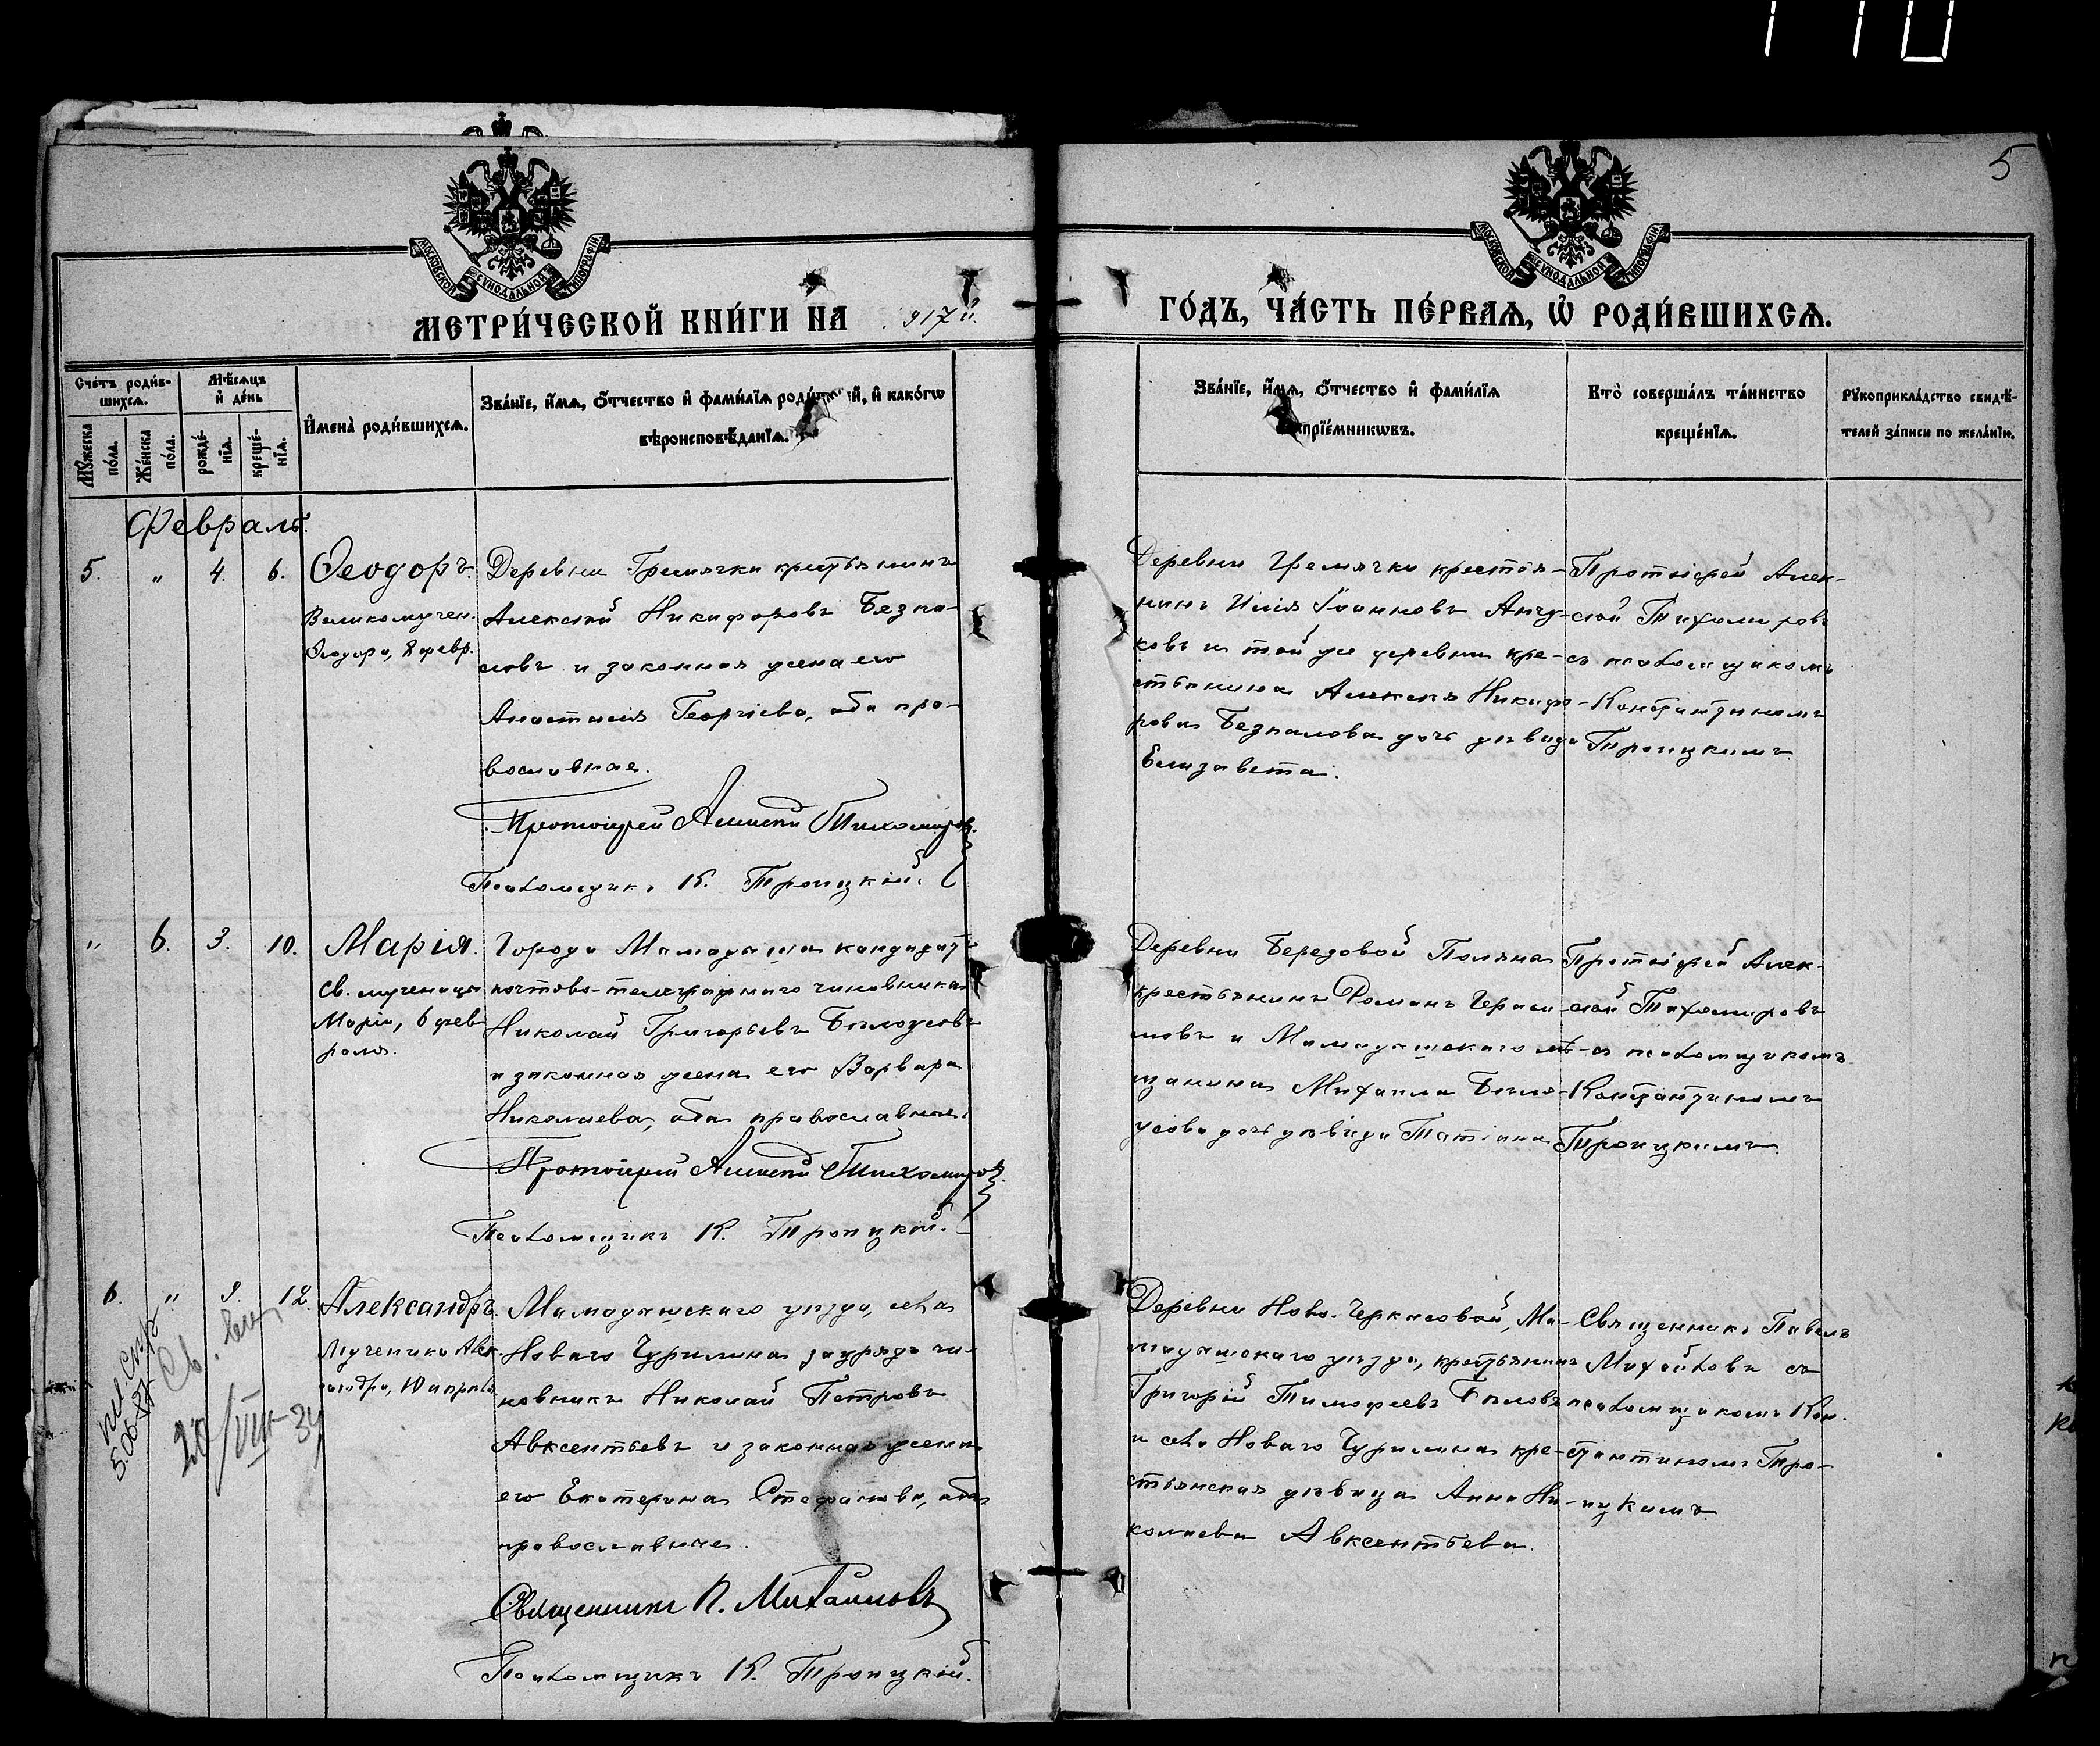 5
МОСКОВСКОЙ СУНОДАЛЬНОЙ ТИПОГРАФІИ
МОСКОВСКОЙ СУНОДАЛЬНОЙ ТИПОГРАФІИ
МЕТРИ́ЧЕСКОЙ КНИ́ГИ НА 917 й. ГО́ДЪ, ЧА́СТЬ ПЕ́РВАѦ, Ѡ҆ РОДИ́ВШИХСѦ.
Сче́тъ роди́в-
шихсѧ.
Мꙋ́жеска по́ла.
Же́нска по́ла.
Мѣ́сѧцъ и҆ де́нь
рожде́-
нїѧ.
креще́-
нїѧ.
И҆мена̀ роди́вшихсѧ.
Зва́нїе, и҆́мѧ, ѻ҆́тчество и҆ фами́лїѧ роди́телей, и҆ какѡ́гѡ
вѣроисповѣ́данїѧ.
Зва́нїе, и҆́мѧ, ѻ҆́тчество и҆ фами́лїѧ
прїе́мникѡвъ.
Кто̀ соверша́лъ та́инство
креще́нїѧ.
Рꙋкоприкла́дство свидѣ́-
телей за́писи по жела́нїю.
Февраль.
5. " 4. 6.
Ѳеодоръ.
Великомучен.
Ѳеодора, 8 февр.
Деревни Гремячки крестьянинъ
Алексѣй Никифоровъ Безпа-
ловъ и законная жена его
Анастасія Георгіева, оба пра-
вославные.
Протоіерей Алексѣй Тихомировъ
Псаломщикъ К. Троицкій.
Деревни Гремячки крестья-
нинъ Илія Іоанновъ Анчу-
ковъ и той же деревни кре-
стьянина Алексѣя Никифо-
рова Безпалова дочь дѣвица
Елизавета.
Протоіерей Алек-
сѣй Тихомировъ
съ псаломщикомъ
Константиномъ
Троицкимъ.
" 6. 3. 10.
Марія.
Св. мученицы
Маріи, 6 фев-
раля.
Города Мамадыша кандидатъ
почтово-телеграфнаго чиновника
Николай Григорьевъ Бѣлоусовъ
и законная жена его Варвара
Николаева, оба православные.
Протоіерей Алексѣй Тихомировъ
Псаломщикъ К. Троицкій.
Деревни Березовой Поляны
крестьянинъ Романъ Гераси-
мовъ и Мамадышскаго мѣ-
щанина Михаила Бѣло-
усова дочь дѣвица Татіана
Протоіерей Алек-
сѣй Тихомировъ
съ псаломщикомъ
Константиномъ
Троицкимъ.
6. " 9. 12.
Александръ.
Мученика Алек-
сандра, 10 апрѣля.
Мамадышскаго уѣзда, села
Новаго Чурилина заурядъ чи-
новникъ Николай Петровъ
Авксентьевъ и законная жена
его Екатерина Стефанова, оба
православные.
Священникъ П. Михайловъ
Псаломщикъ К. Троицкій.
Деревни Ново-Черкасовой, Ма-
мадышскаго уѣзда, крестьянинъ
Григорій Тимофеевъ Бѣловъ
и села Новаго Чурилина кре-
стьянская дѣвица Анна Ни-
колаева Авксентьева.
Священникъ Павелъ
Михайловъ съ
псаломщикомъ Кон-
стантиномъ Тро-
ицкимъ.
20/VIII-34